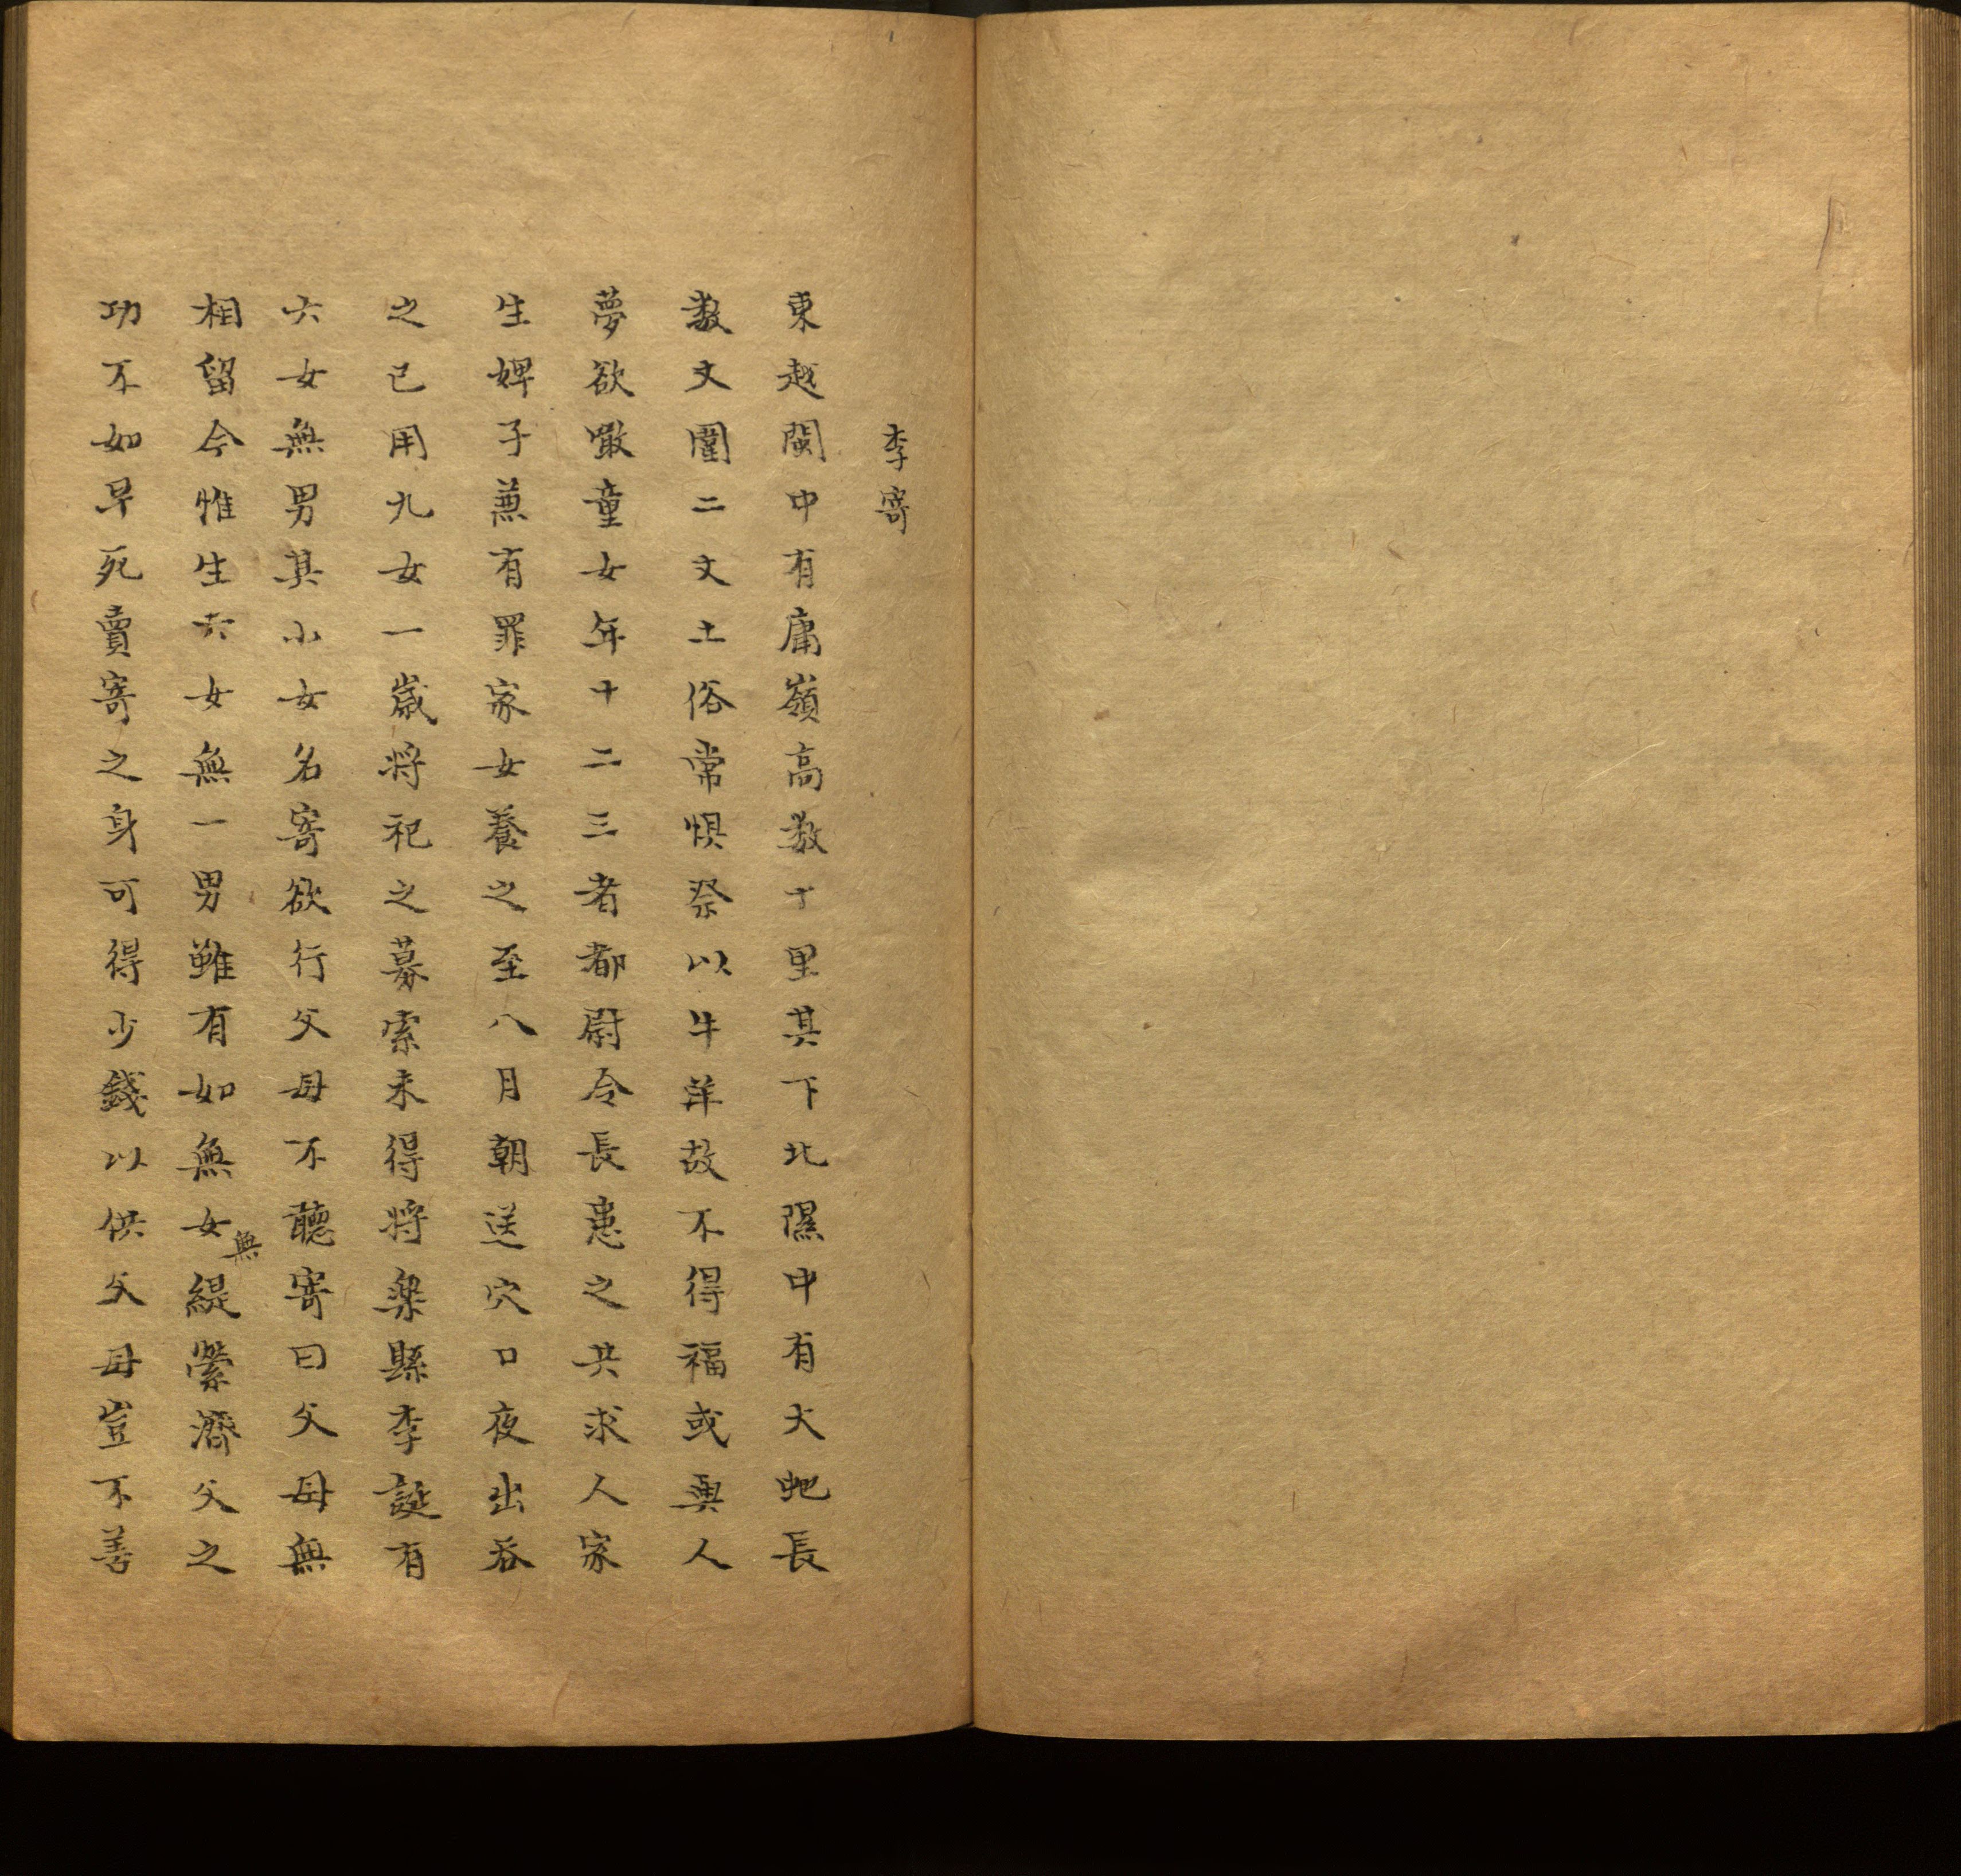 李寄
東越閩中有庸嶺高数十里其下北隰中有大虵長
数丈圍二丈土俗常惧祭以牛羊故不得福或與人
夢欲噉童女年十二三者都尉令長患之共求人家
生婢子蕙有罪家女養之至八月朝送穴口夜出吞
之已用九女一歲将祀之募索未得将樂縣李誕有
六女無男其小女名寄欲行父母不聽寄曰父母無
相留今惟生六女無一男雖有如無女無緹縈濟父之
功不如早死賣寄之身可得少錢以供父母豈不善